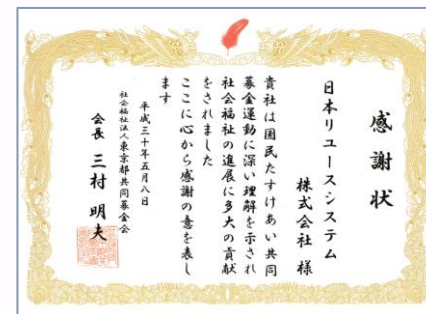 感謝状
日本リユースシステム
株式会社 様
貴社は国民たすけあい共同
募金運動に深い理解を示され
社会福祉の進展に多大の貢献
をされました
ここに心から感謝の意を表し
ます
平成三十年五月八日
社会福祉法人東京都共同募金会
会長 三村明夫